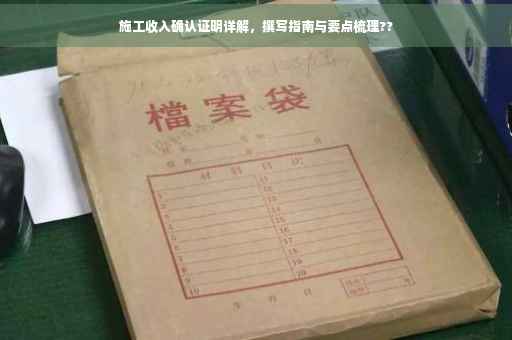 施工收入确认证明详解，撰写指南与要点梳理??
檔案袋
材料目次
1 11
2 12
3 13
4 14
5 15
6 16
7 17
8 18
9 19
10 20
年 月 日